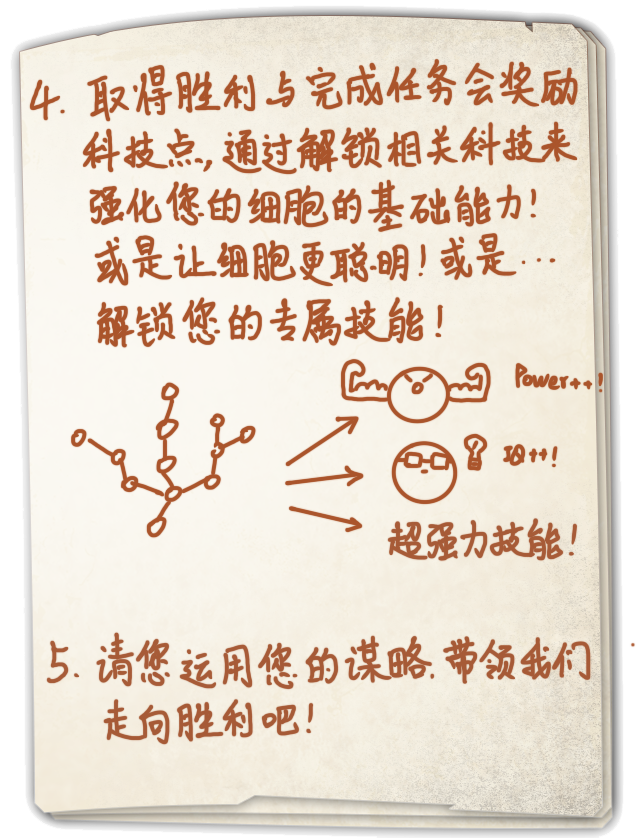 4. 取得胜利与完成任务会奖励
科技点,通过解锁相关科技来
强化您的细胞的基础能力!
或是让细胞更聪明!或是…
解锁您的专属技能!
Power++!
IQ++!
超强力技能!
5. 请您运用您的谋略.带领我们
走向胜利吧!